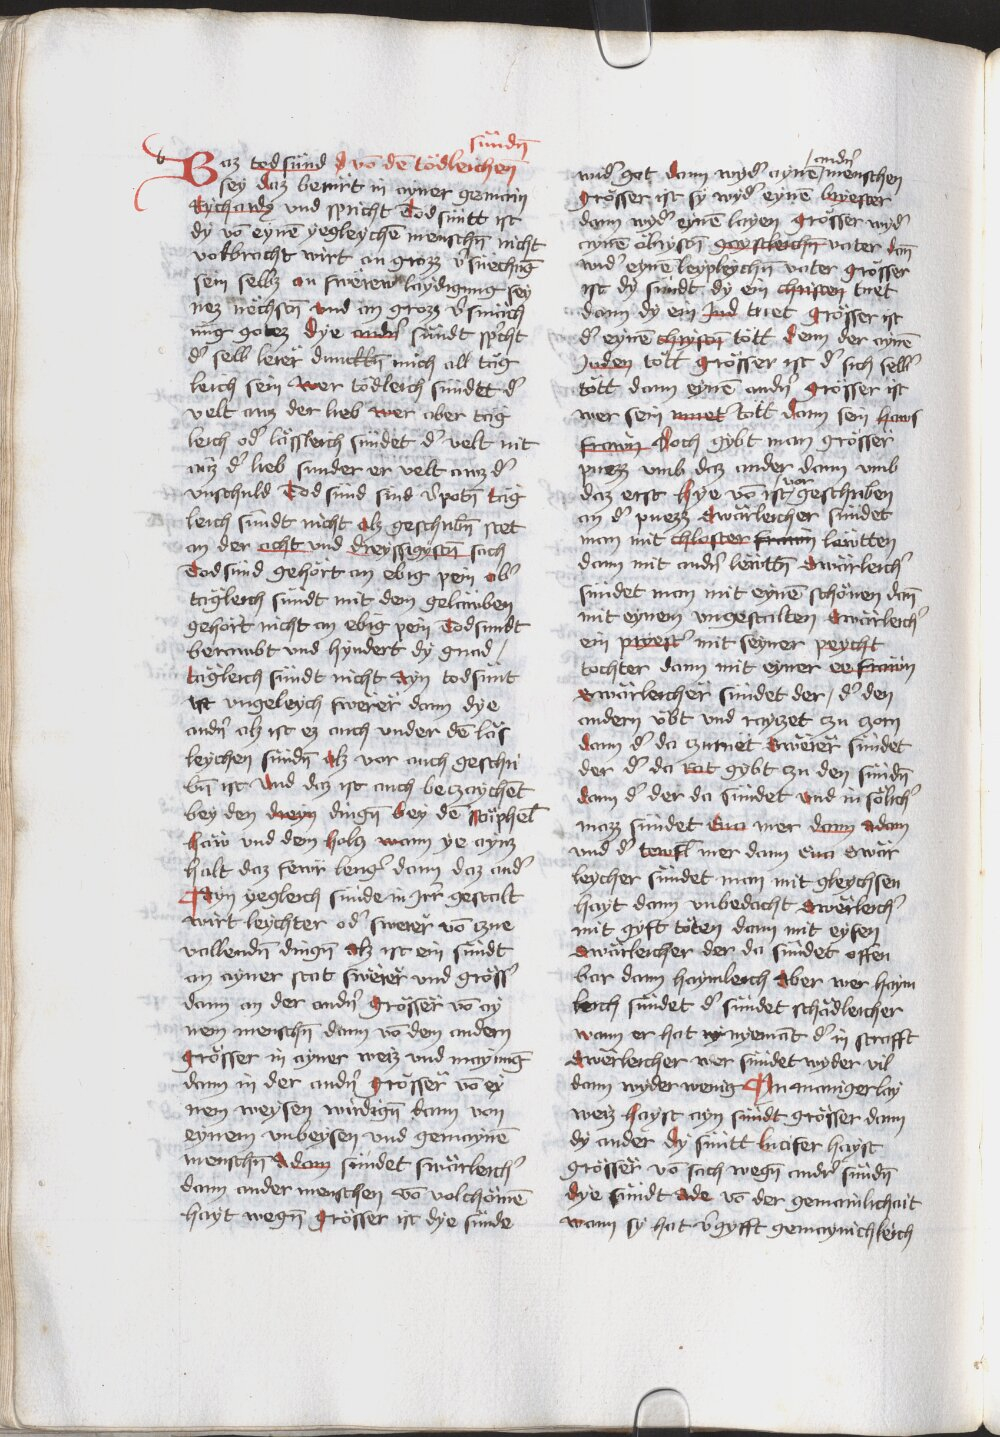 sündn̄
Waz tod sünd ꝺ vō dē tödleichen̄
sey daz bewirt in ayner gemain
Rychardꝫ vnd spricht Tod süntt ist
dy vō eynē yegleychē menschn̄ nicht
volbracht wirt an grozz v̓smechūg
sein selbꝫ an swërew laydigung sey
nez nëchstn̄ vnd an grozz v̓smäch
ūg gotez Dye andn̓ sündt sp̓cht
d̓ selb lerër dunckkn̄ mich all täg
leich sein Wer tödleich sündet d̓
velt auz der lieb wer aber täg
leich od̓ lässleich sündet d̓ velt nit
auz d̓ lieb sunder er velt auz d̓
vnschuld Tod sünd sind v̓potn̄ täg
leich sündt nicht Alz geschribn̄ stet
an der acht vnd dreyssigistn̄ sach
Tod sünd gehört an ebig pein ab̓
tägleich sündt mit dem gelauben
gehört nicht an ebig pein Todsündt
beraubt vnd hyndert dy gnad /
tägleich sündt nicht Ayn todsünt
ist vngeleych swerër dann dye
andn̓ alz ist ez auch vnder dē läs
leychen sündn̄ Alz vor auch geschri
bn̄ ist Vnd daz ist auch betzaychet
bey den dreyn dingn̄ bey dē stüphel̄
häw vnd dem holcz wann ye aynz
halt daz fewr leng̓ dann daz and̓
Ayn yegleich sünde in Irr̓ gestalt
wirt leychter od̓ swerër vō czue
vallendn̄ dingn̄ Alz ist ein sündt
an ayner stat swërër vnd gröss̓
dann an der andn̓ Grösser vō ay
nem menschn̄ dann vō dem andern
Grösser in ayner weiz vnd maynūg
dann in der andn̓ Grösser vō ey
nem weysen wirdign̄ dann von
eynem vnbeysen vnd gemaynē
menschn̄ Adam sündet swärleich̓
dann ander menschen vō volchömē
hayt wegn̄ Grösser ist dye sünde
wid̓ got dann wyd̓ aynē / andn̓ menschen
Grösser ist sy wyd̓ eynē briester
dann wyd̓ eynē layen Grösser wyd̓
aynē öbristn̄ gaystleichn̄ vater dan̄
wid̓ eynē leypleychn̄ vater Grösser
ist dy sündt dy ein christen tuet
dann dy ein Jud tuet Grösser ist
d̓ eynē christn̄ tött denn der aynē
Juden tött Grösser ist d̓ sich selb̓
tött dann eynē andn̓ Grösser ist
wer sein muet̓ tött dann sein haws
frawn Doch gybt man grösser
puezz vmb daz ander dann vmb
daz erst Hye vō ist / vor geschriben
an d̓ puezz Swärleicher sündet
man mit chloster frawn lewtten
dann mit andn̓ lewttn̄ Swärleich̓
sündet man mit eynē schönen dan̄
mit eynem vngestalten Swärleich̓
ein priest̓ mit seyner peycht
tochter dann mit eyner ee frawn
Swärleicher sündet der / d̓ den
andern vbt vnd rayczet czu zorn
dann d̓ da czurnet Swerer sündet
der d̓ da rat gybt czu den sündn̄
dann d̓ der da sündet Vnd in sölich̓
mazz sündet Eua mer dann Adam
vnd d̓ tewfl̓ mer dann Eua Swär
leycher sündet man mit gleychsen
hayt dann vnbedacht Swërleich̓
mit gyft töten dann mit eysen
Swärleicher der da sündet offen
bar dann haymleich Aber wer haym
leich sündet d̓ sündet schädleicher
wann er hat nyemāt d̓ in strafft
Swerleicher wer sündet wyder vil
dann wyder wenig In manigerlay
weiz hayst ayn sündt grösser dann
dy ander Dy süntt lucifer hayst
grösser vō sach wegn̄ andr̓ sündn̄
Dye sündt Ade vō der gemainlichait
wann sy hat v̓gyfft gemaynichleich